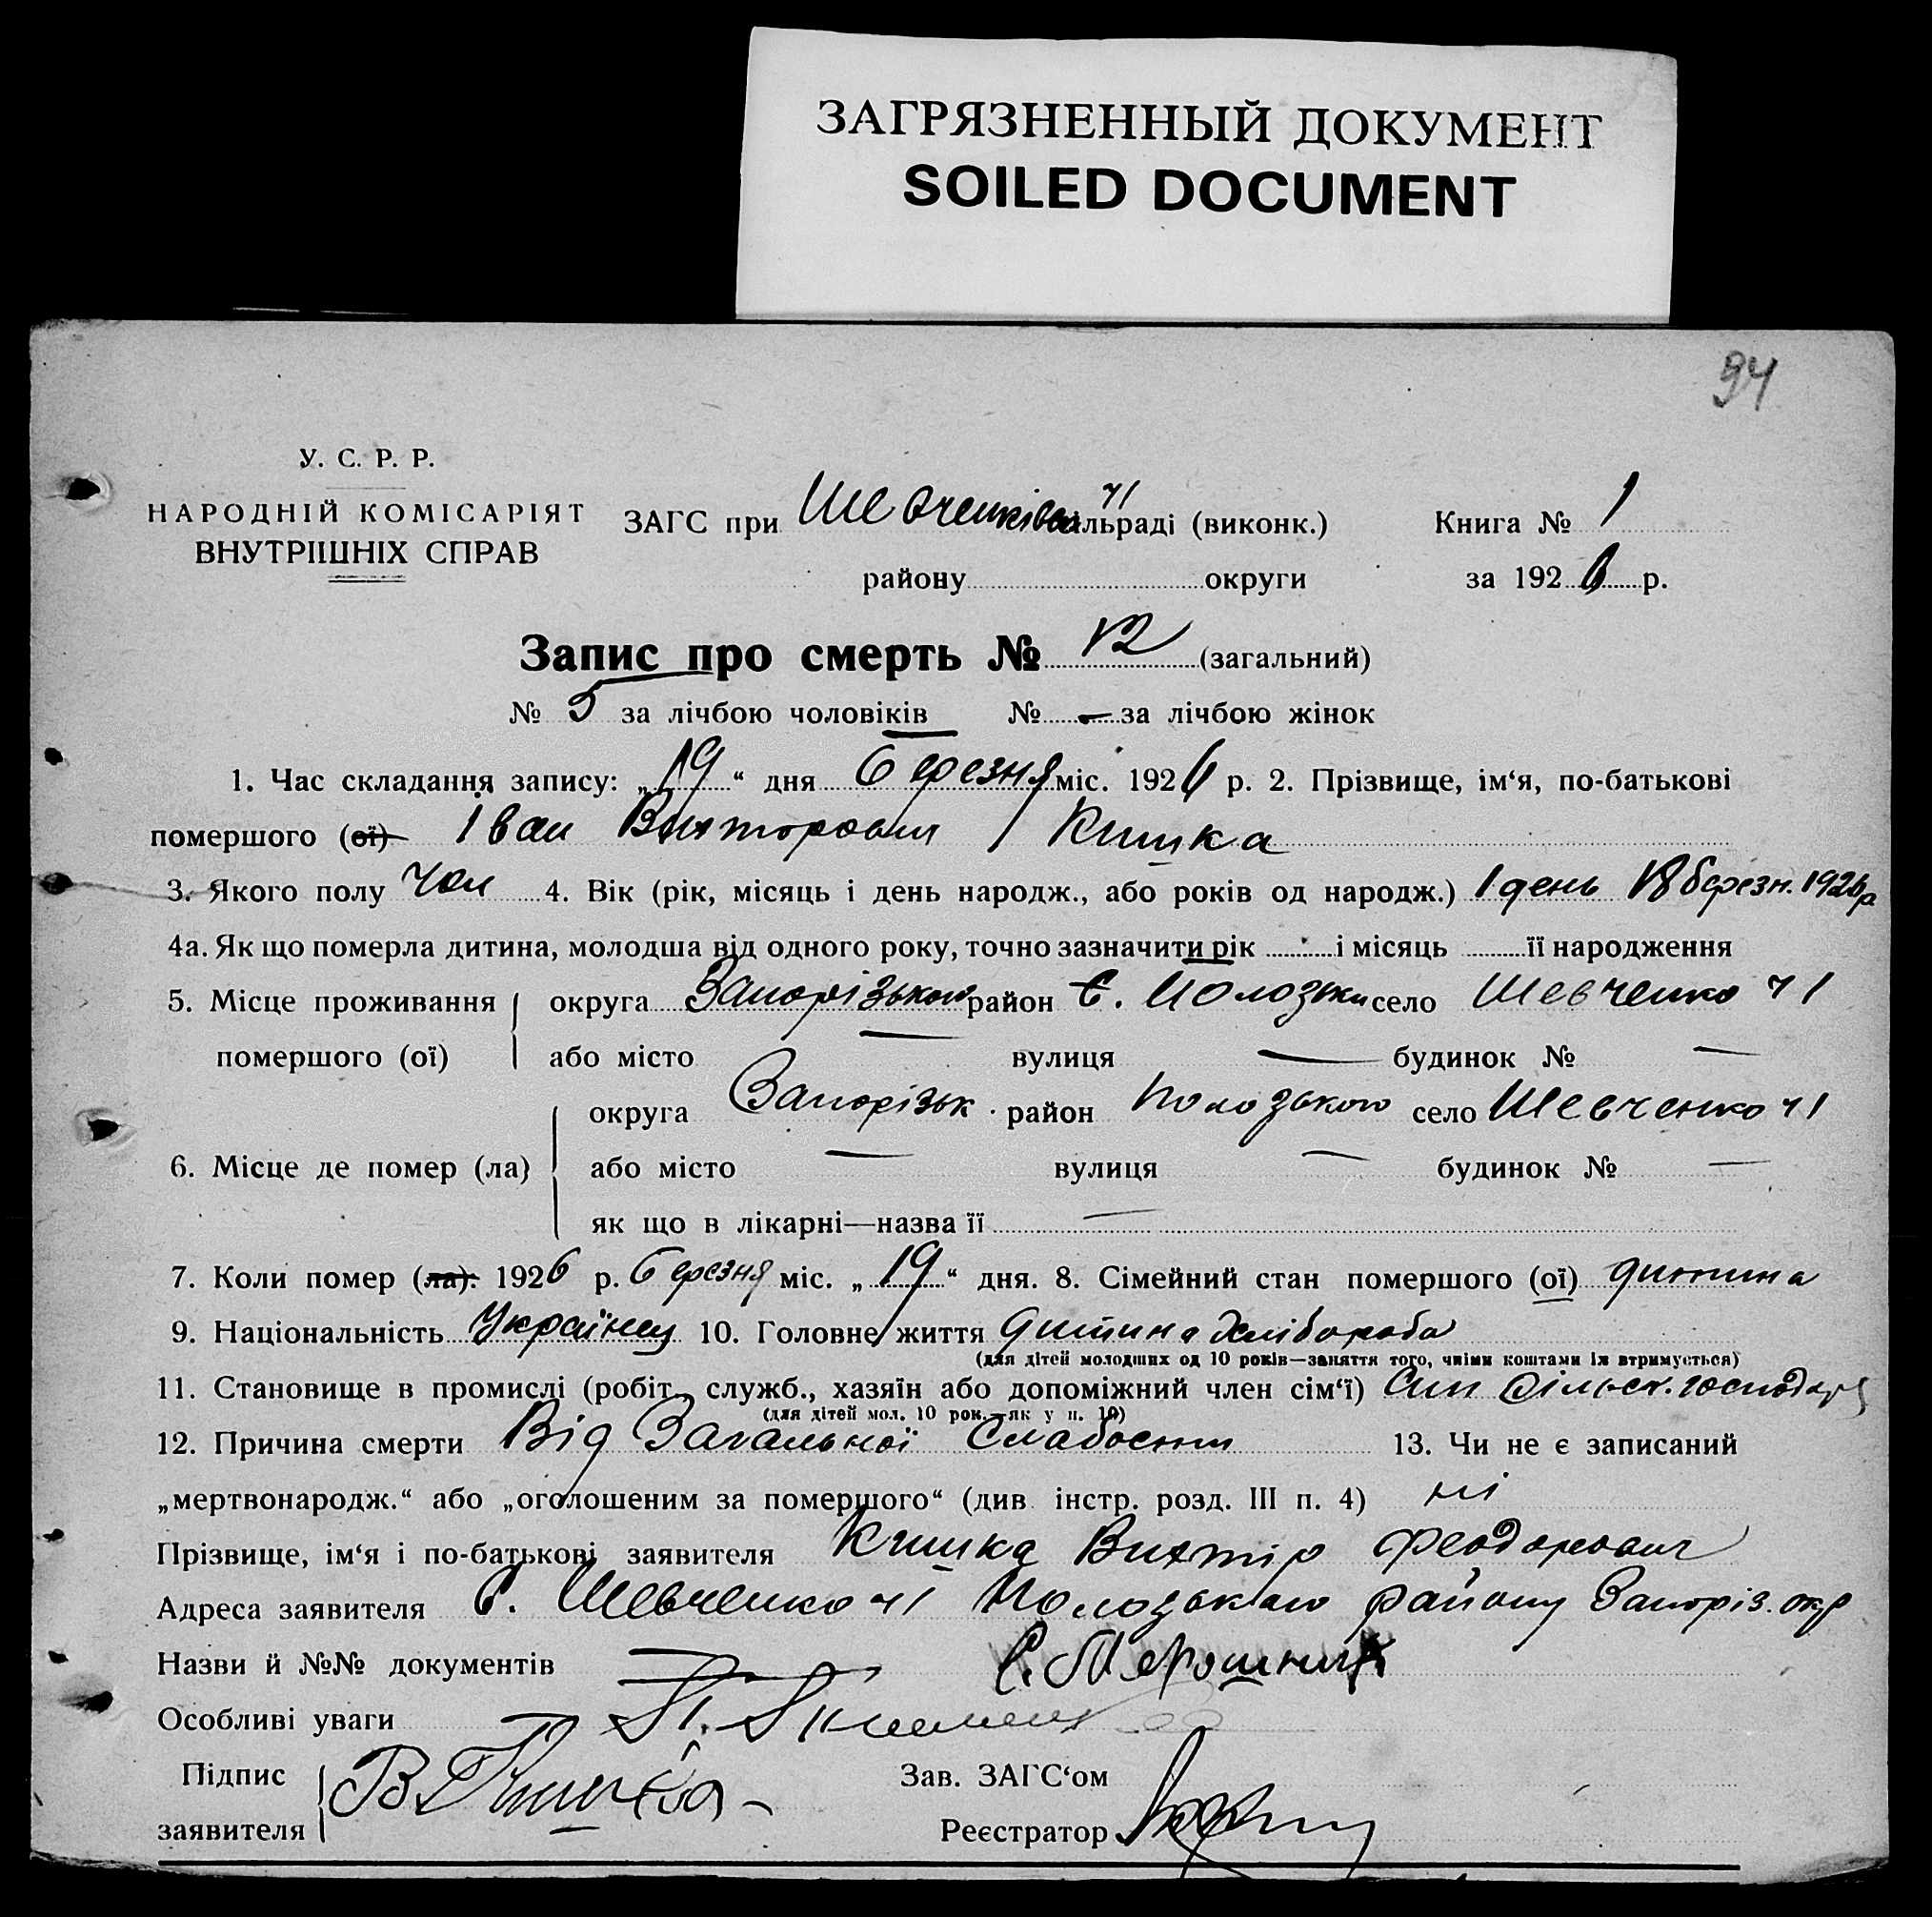 ЗАГРЯЗНЕННЫЙ ДОКУМЕНТ
SOILED DOCUMENT
94
У. С. Р. Р.
НАРОДНІЙ КОМІСАРІЯТ
ВНУТРІШНІХ СПРАВ
ЗАГС при Шевченківськільраді (виконк.) Книга № 1
району округи за 1926 р.
Запис про смерть № 12 (загальний)
№ 5 за лічбою чоловіків № — за лічбою жінок
1. Час складання запису: „19“ дня березня міс. 1926 р. 2. Прізвище, ім‘я, по-батькові
помершого (ої) Іван Викторович Кишка
3. Якого полу Чол 4. Вік (рік, місяць і день народж., або років од народж.) 1 день 18 березн. 1926 р
4а. Як що померла дитина, молодша від одного року, точно зазначити рік і місяць її народження
5. Місце проживання округа Запорізького район Пологзьки село Шевченко ч 1
помершого (ої) або місто — вулиця — будинок № —
округа Запорізьк. район Пологзького село Шевченко ч 1
6. Місце де помер (ла) або місто — вулиця — будинок № —
як що в лікарні—назва її —
7. Коли помер (ла): 1926 р. березня міс. „19“ дня. 8. Сімейний стан помершого (ої) дитина
9. Національність Українец 10. Головне життя дитина хлібороба
(для дітей молодших од 10 років—заняття того, чиїми коштами їх втримується)
11. Становище в промислі (робіт., служб., хазяїн або допоміжний член сім‘ї) Син сільск. господаря
(для дітей мол. 10 рок.—як у п. 10)
12. Причина смерти Від Загальної Слабости 13. Чи не є записаний
„мертвонародж.“ або „оголошеним за помершого“ (див. інстр. розд. III п. 4) ні
Прізвище, ім‘я і по-батькові заявителя Кишка Виктір Феодорович
Адреса заявителя С. Шевченко ч 1 Пологзького району Запоріз. окр
Назви й №№ документів —
Особливі уваги —
Підпис
заявителя В. Кишка
Зав. ЗАГС‘ом
Реєстратор